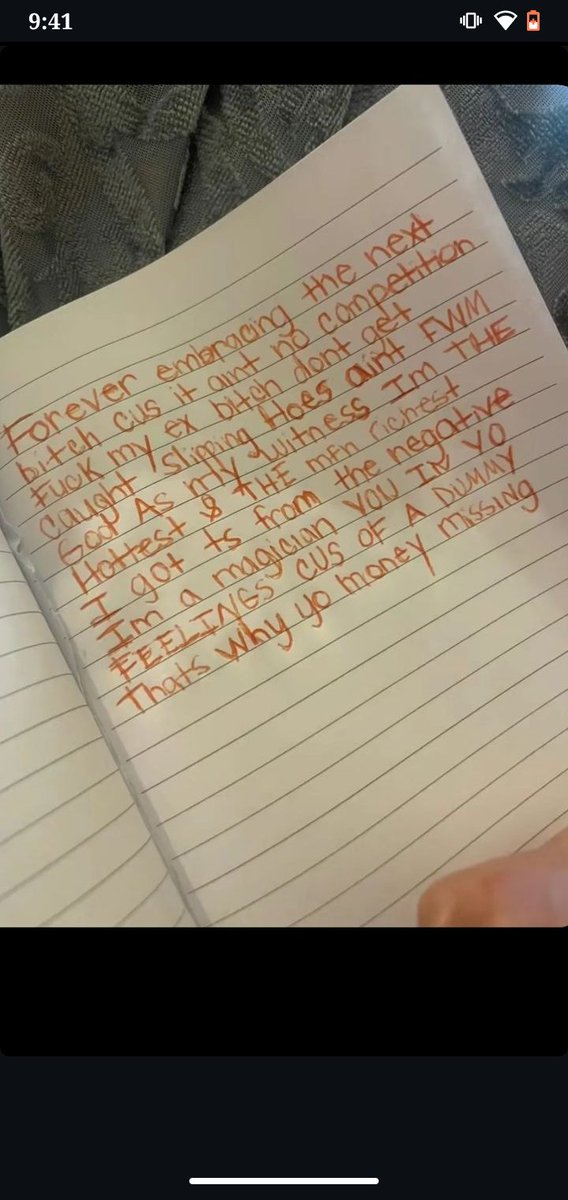 9:41
Forever embracing the next
bitch cus it aint no conpetition
Fuck my ex bitch dont get
caught slipping Hoes aint FWM
God As my witness Im THE
Hottest & THE mfn richest
I got ts from the negative
Im a magician YOU IN YO
FEELINGS CUS OF A DUMMY
Thats why yo money missing